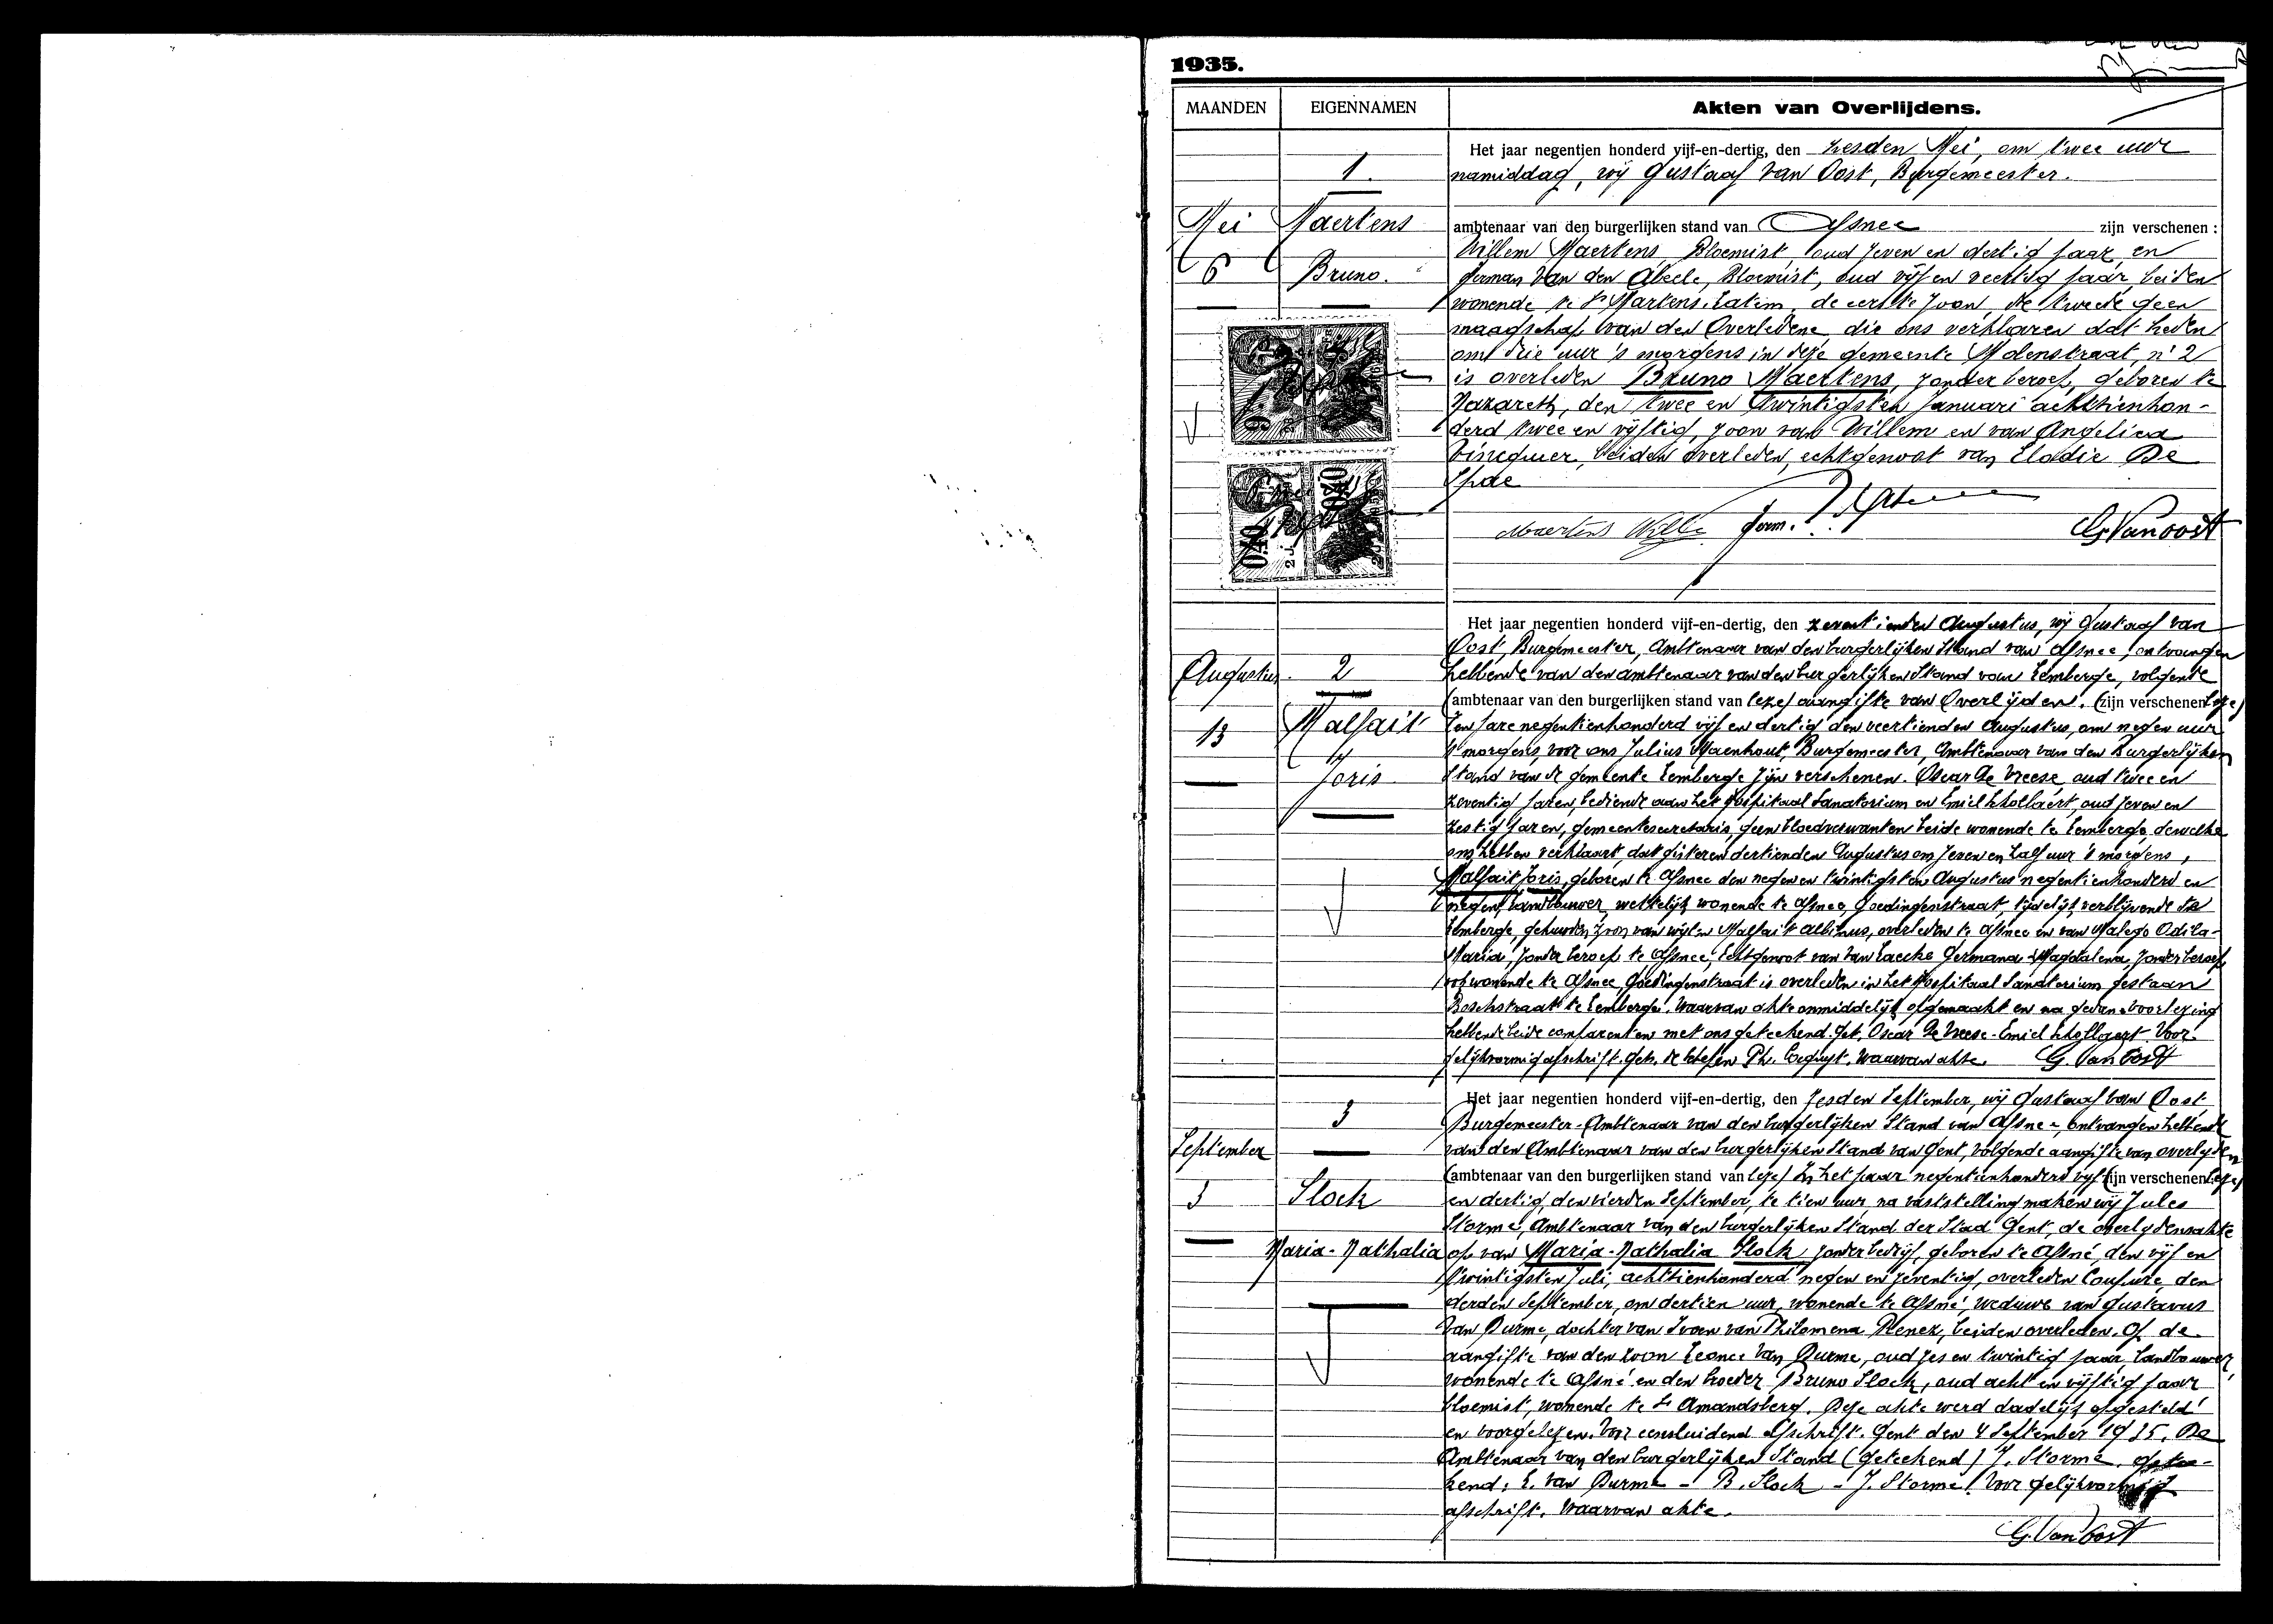 1935.
MAANDEN EIGENNAMEN Akten van Overlijdens.
Het jaar negentien honderd vijf-en-dertig, den zesden Mei, om twee uur
1. namiddag, wij Gustaaf Van Oost, Burgemeester.
Mei Maertens ambtenaar van den burgerlijken stand van Afsnee zijn verschenen :
Willem Maertens, Bloemist, oud zeven en dertig jaar, en
6 Bruno. German Van den Abeele, Bloemist, oud vijf en veertig jaar, beiden
wonende te St Martens-Latem, de eerste zoon, de tweede geen
maagschap van den Overledene, die ons verklaren dat heden
om drie uur 's morgens in deze gemeente Molenstraat, n° 2
is overleden Bruno Maertens, zonder beroep, geboren te
Nazareth, den twee en twintigsten Januari achttienhon-
derd twee en vijftig, zoon van Willem en van Angelica
beiden overleden, echtgenoot van Elodie De
Maertens Wille Germ. G. Van oost
Het jaar negentien honderd vijf-en-dertig, den zeventienden Augustus, wij Gustaaf van
Oost, Burgemeester, Ambtenaar van den burgerlijken Stand van Afsnee, ontvangen
Augustus 2 hebbende van den ambtenaar van den burgerlijken Stand van Lemberge, volgende
(ambtenaar van den burgerlijken stand van leze) aangifte van Overlijden. (zijn verschenen leze)
Malfait Ten jare negentienhonderd vijf en dertig den veertienden Augustus, om negen uur
13 's morgens, voor ons Julius Maenhout, Burgemeester, Ambtenaar van den Burgerlijken
Joris Stand van de gemeente Lemberge zijn verschenen. Oscar De Vreese, oud twee en
zeventig jaren, bediende aan het Hospitaal Sanatorium en Emiel Schollaert, oud zeven en
zestig jaren, gemeentesecretaris, geen bloedverwanten beide wonende te Lemberge, dewelke
ons hebben verklaart, dat gisteren dertienden Augustus om zeven en half uur 's morgens,
Malfait Joris, geboren te Afsnee den negen en twintigsten Augustus negentienhonderd en
negen, landbouwer, wettelijk wonende te Afsnee, Goedingenstraat, tijdelijk verblijvende te
Lemberge, gehuwden zoon van wijlen Malfait Albinus, overleden te Afsnee en van Malego Odila-
Maria, zonder beroep te Afsnee, echtgenoot van Van Laecke Germana-Magdalena, zonder beroep
ook wonende te Afsnee, Goedingenstraat is overleden in het Hospitaal Sanatorium gestaan
Boschstraat te Lemberge. Waarvan akte onmiddelijk opgemaakt en na gedane voorlezing
hebbende beide comparenten met ons geteekend. Get. Oscar De Vreese - Emiel Schollaert. Voor
gelijkvormig afschrift. Get. De Schepen Ph. waarvan akte. G. Van Oost
Het jaar negentien honderd vijf-en-dertig, den zesden September, wij Gustaaf Van Oost,
3 Burgemeester-Ambtenaar van den burgerlijken Stand van Afsnee, ontvangen hebbende
September van den Ambtenaar van den burgerlijken Stand van Gent, volgende aangifte van overlijden
(ambtenaar van den burgerlijken stand van leze) In het jaar negentienhonderd vijf (zijn verschenen leze)
3 Slock en dertig, den vierden September, te tien uur, na vaststelling maken wij Jules
Storme, Ambtenaar van den burgerlijken Stand der Stad Gent, de overlijdensakte
Maria-Nathalia op van Maria-Nathalia Slock zonder bedrijf, geboren te Afsné, den vijf en
twintigsten Juli, achttienhonderd negen en zeventig, overleden Coupure, den
derden September, om dertien uur, wonende te Afsné, weduwe van Gustavus
Van Durme, dochter van Ivo en van Philomena beiden overleden. Op de
aangifte van den zoon Leonce Van Durme, oud zes en twintig jaar, landbouwer,
wonende te Afsné en den broeder Bruno Slock, oud acht en vijftig jaar
bloemist, wonende te St Amandsberg. Deze akte werd dadelijk opgesteld
en voorgelezen. Voor eensluidend afschrift. Gent den 4 September 1935. De
Ambtenaar van den burgerlijken Stand (geteekend) J. Storme. getee-
kend: L. Van Durme - B. Slock - J. Storme. Voor gelijkvormig
afschrift. Waarvan akte.
G. Van Oost